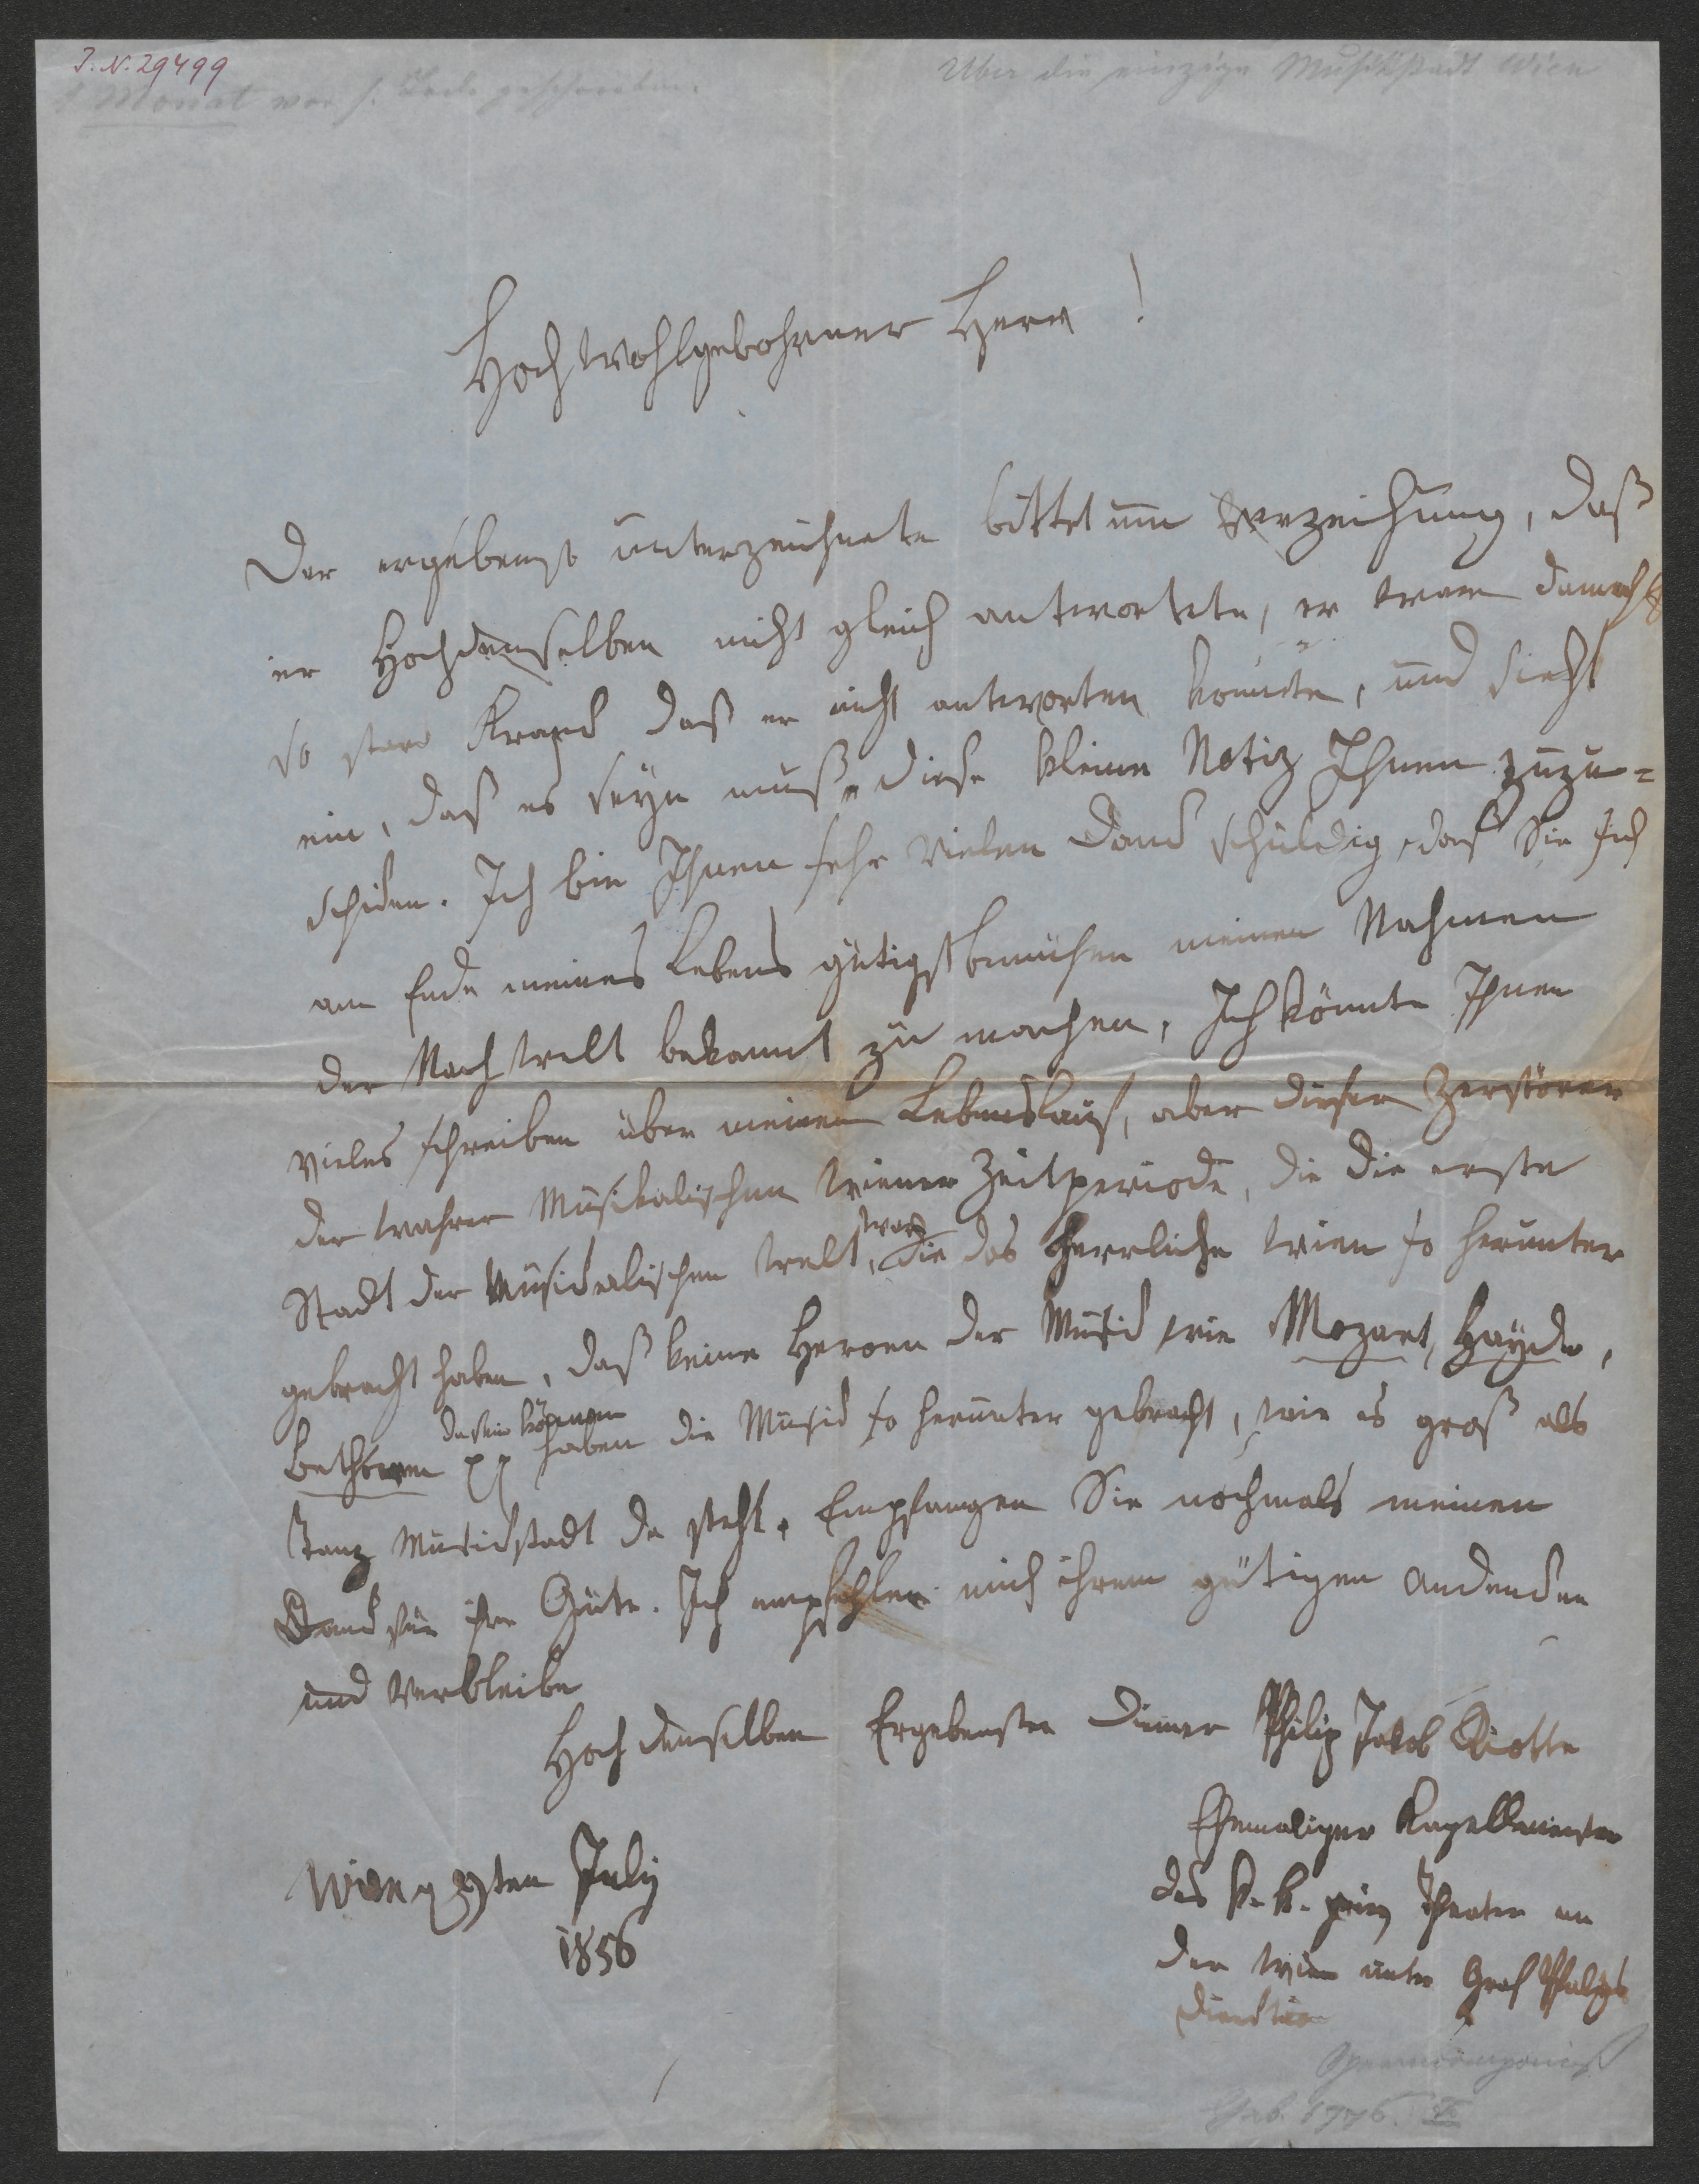 I. N. 29499
Über die einzige Musikstadt Wien
1 Monat vor s. Tode geschrieben.
Hochwohlgebohrner Herr!
Der ergebenst unterzeichnete bittet um Verzeihung, daß
er Hochdenselben nicht gleich antwortete, er war damahls
so starc Kranck daß er nicht antworten konnte, und sieht
ein, daß es seyn muß, diese kleine Notiz Ihnen zuzu=
schiken. Ich bin Ihnen sehr vielen Danck schuldig, daß Sie sich
am Ende meines Lebens gütigst bemühen meinen Nahmen
der Nachwelt bekannt zu machen, Ich könnte Ihnen
vieles schreiben über meinen Lebenslauf, aber dieser Zerstörer
der wahren Musikalischen Wiener Zeitperiode, die die erste
Stadt der Musicalischen Welt war, die das Herrliche Wien so herunter
gebracht haben, daß keine Heroen der Musick wie Mozart, Haydn,
Bethoven da sein können haben die Musick so herunter gebracht, wie es groß als
Tanz Musickstadt da steht. Empfangen Sie nochmals meinen
Danck für ihre Güte. Ich empfehle mich ihrem gütigen Andencken
und verbleibe
Hochdenselben Ergebenster Diener Philip Jakob Riotte
Ehemaliger Kapellmeister
des k. k. priv Theater an
der Wien unter Graf Palfys
Direktion
Wien 29ten July
1856
Operncomponist
Geb. 1776.